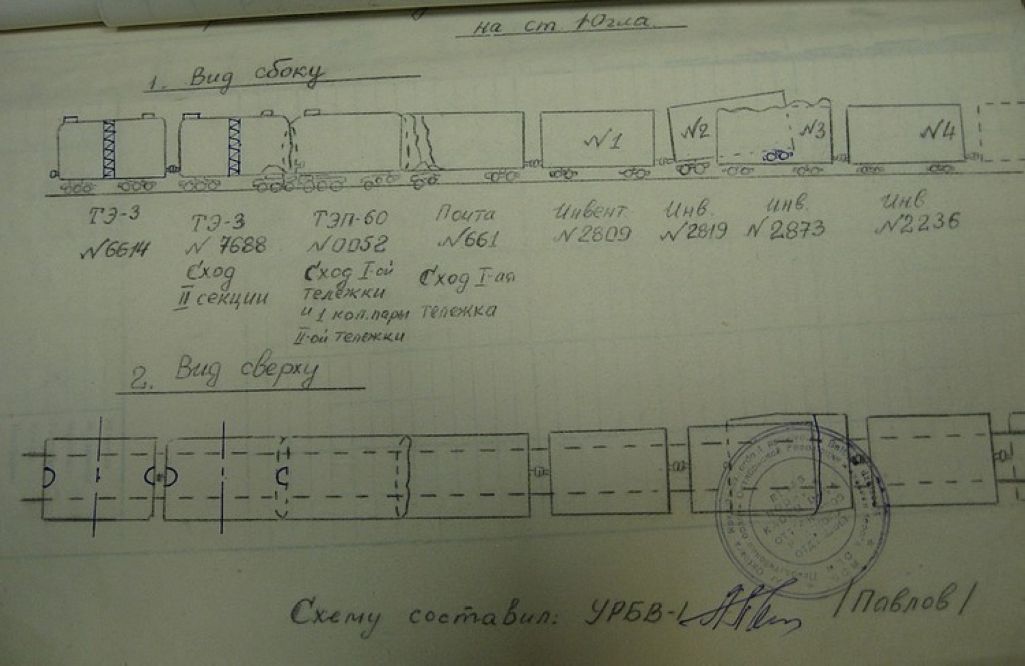 на ст. Югла.
1. Вид сбоку
№1 №2 №3 №4
ТЭ-3 ТЭ-3 ТЭП-60 Почта Инвент. Инв. Инв. Инв
№6614 № 7688 №0052 №661 №2809 №2819 №2873 №2236
Сход Сход I-ой Сход I-ая
II секции тележки
и 1 кол.пары тележка
II-ой тележки
2. Вид сверху
Схему составил: УРБВ-1 /Павлов/